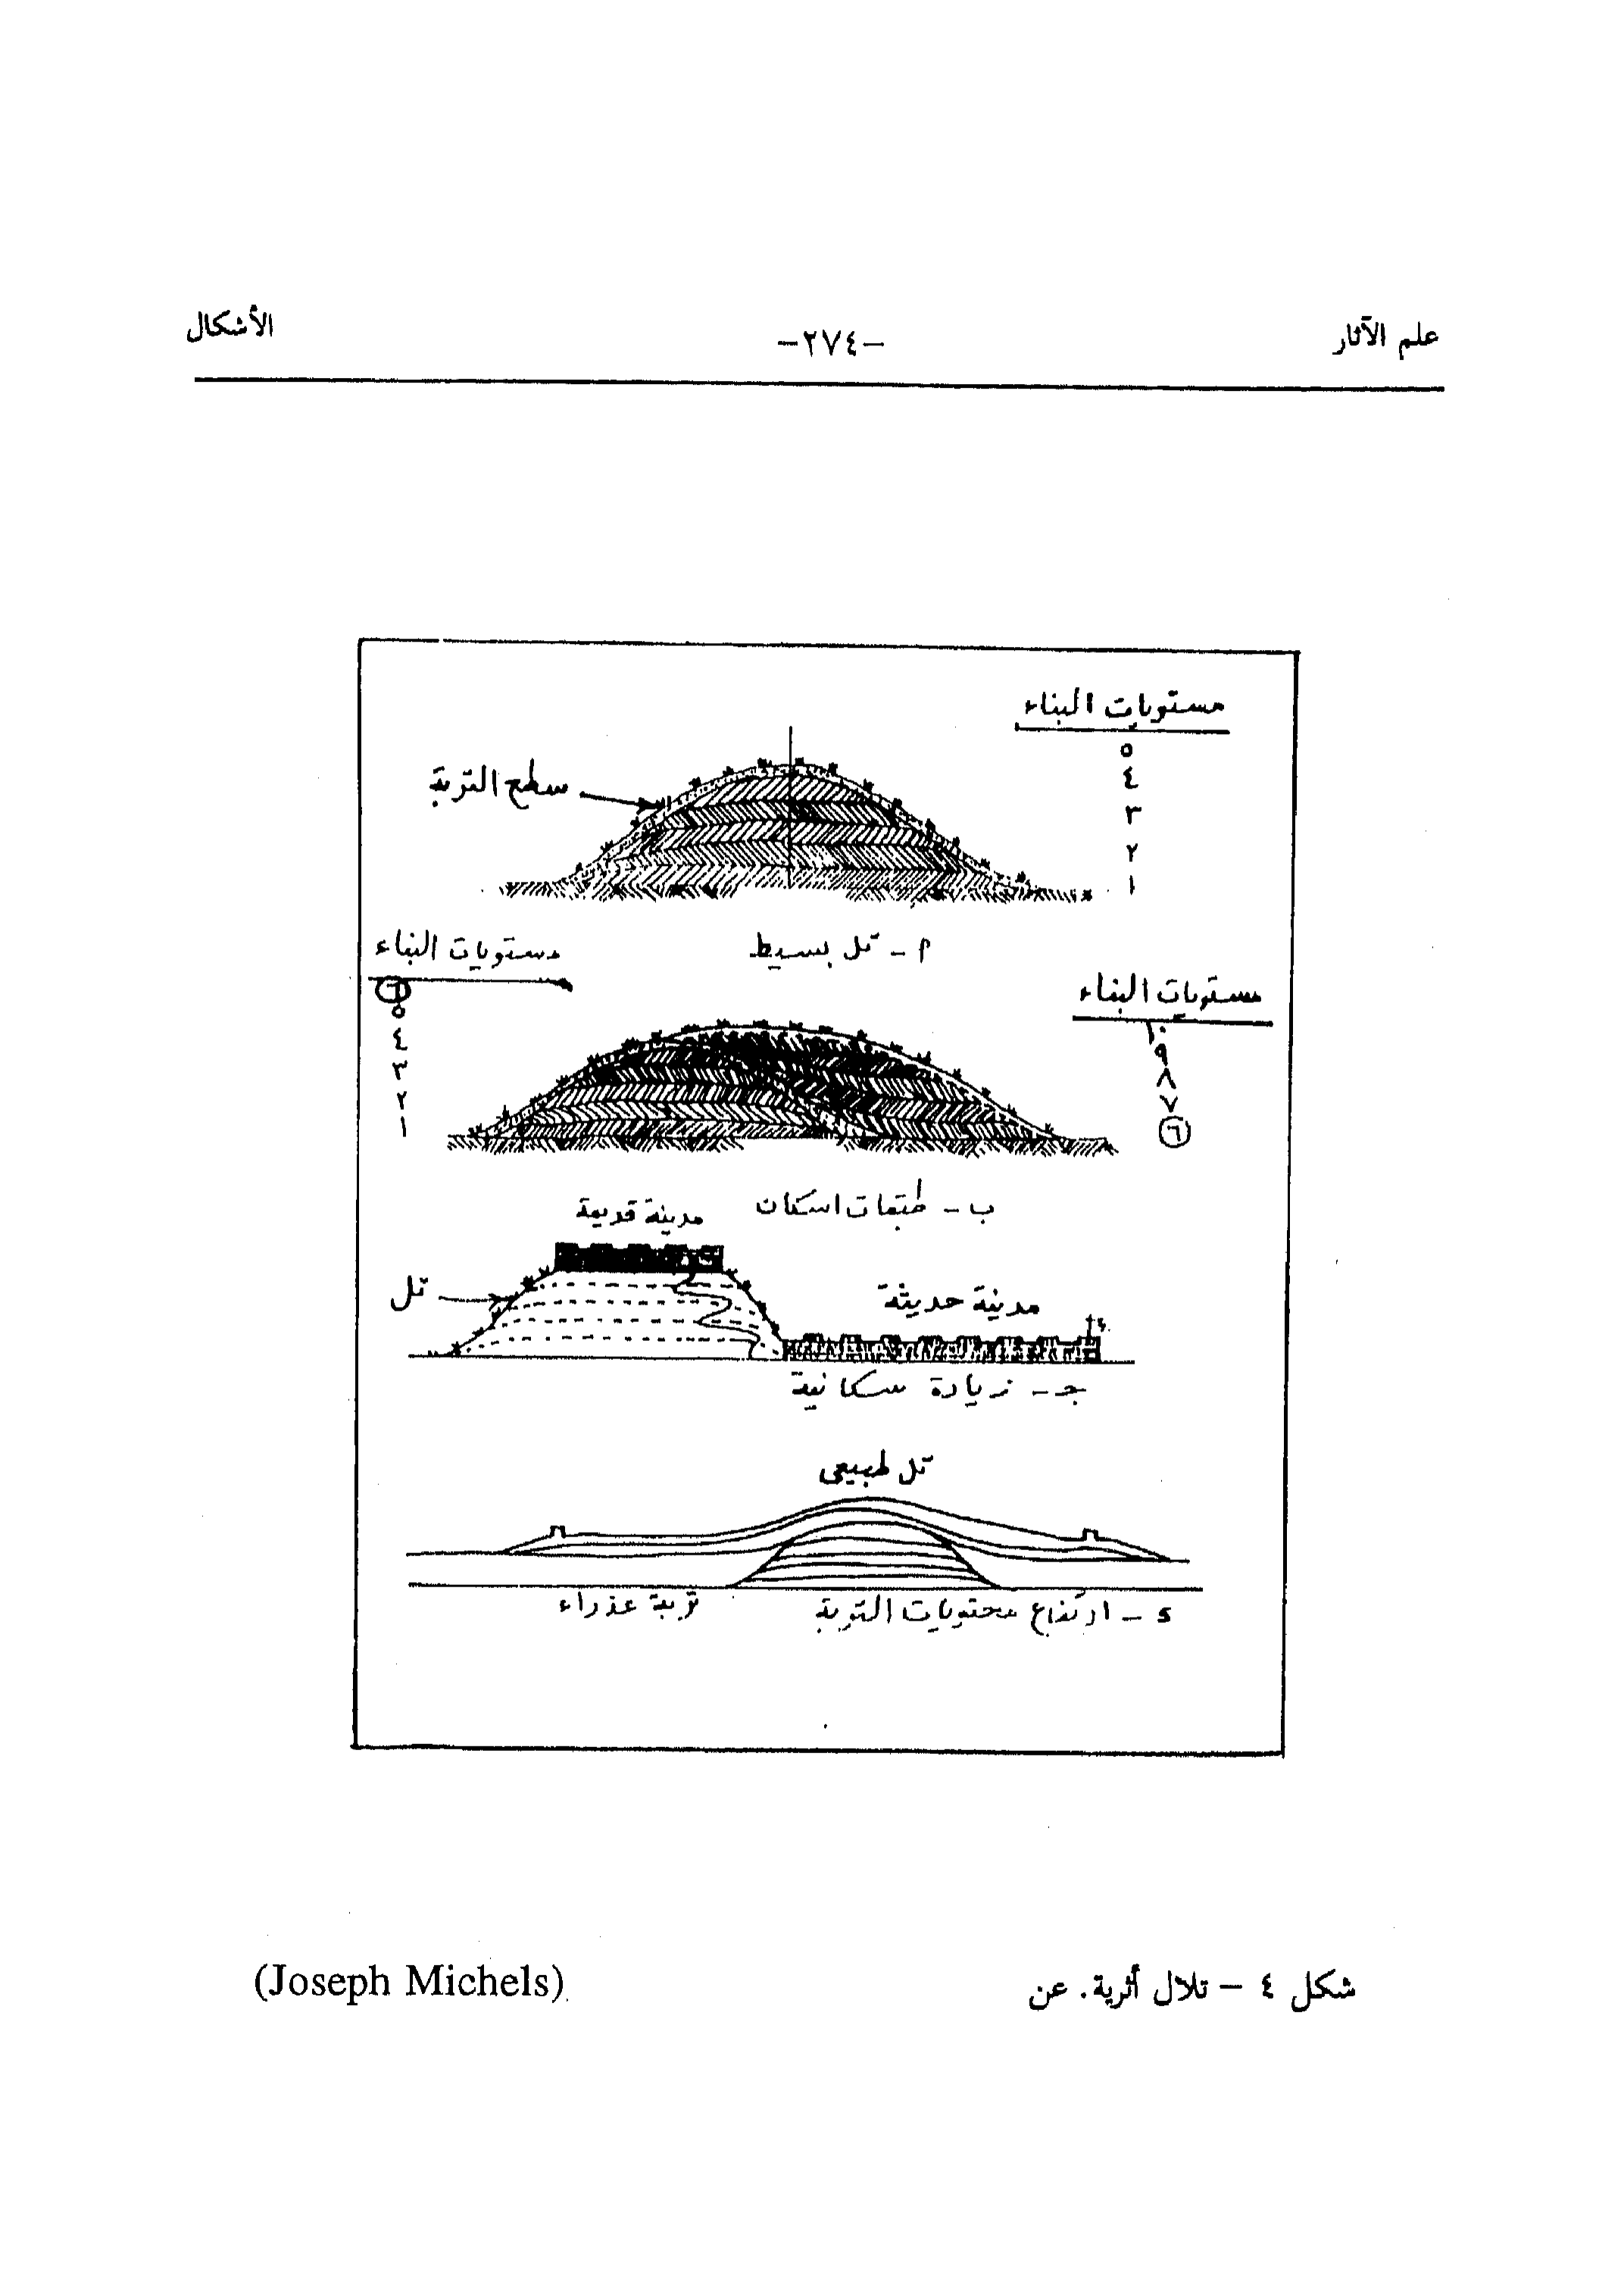 علم الآثار
-٢٧٤-
الأشكال
مستويات البناء
٥
٤
٣
٢
١
سطح التربة
أ - تل بسيط
مستويات البناء
٦
٥
٤
٣
٢
١
مستويات البناء
١٠
٩
٨
٧
٦
ب - طبقات اسكان
مدينة قديمة
تل
مدينة حديثة
جـ - زيادة سكانية
تل طبيعي
د - ارتفاع محتويات التربة
تربة عذراء
شكل ٤ - تلال أثرية. عن (Joseph Michels)